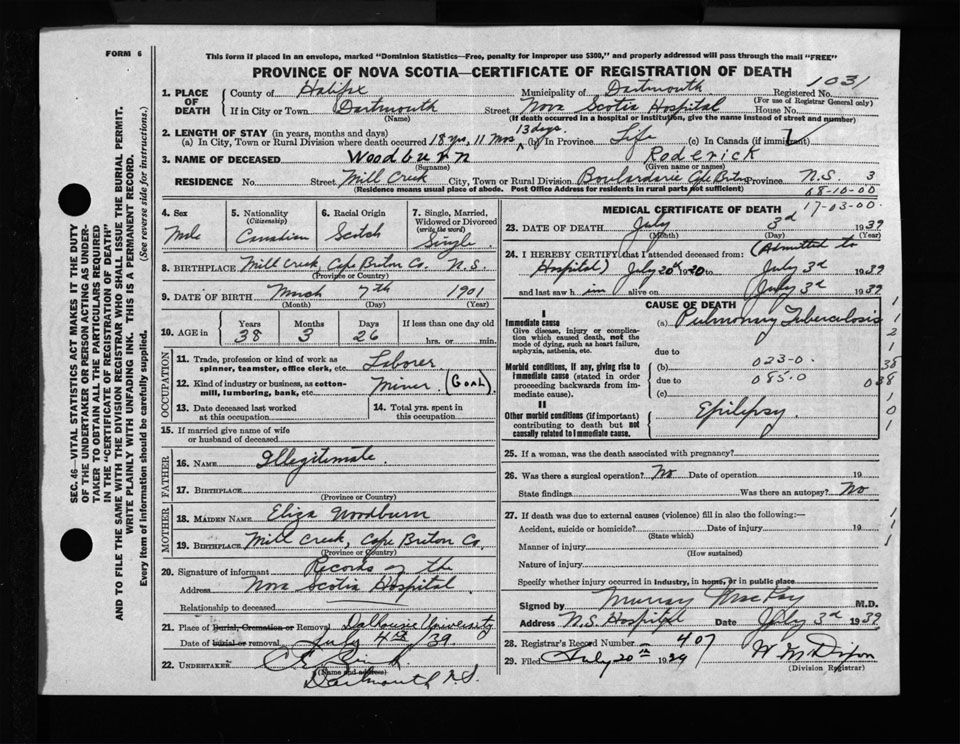 FORM 6
This form if placed in an envelope, marked "Dominion Statistics—Free, penalty for improper use $300," and properly addressed will pass through the mail "FREE"
PROVINCE OF NOVA SCOTIA—CERTIFICATE OF REGISTRATION OF DEATH
SEC. 46—VITAL STATISTICS ACT MAKES IT THE DUTY
OF THE UNDERTAKER OR PERSON ACTING AS UNDER-
TAKER TO OBTAIN ALL THE PARTICULARS REQUIRED
IN THE "CERTIFICATE OF REGISTRATION OF DEATH"
AND TO FILE THE SAME WITH THE DIVISION REGISTRAR WHO SHALL ISSUE THE BURIAL PERMIT.
WRITE PLAINLY WITH UNFADING INK. THIS IS A PERMANENT RECORD.
Every item of information should be carefully supplied. (See reverse side for instructions.)
1. PLACE OF DEATH
County of Halifax Municipality of Dartmouth Registered No. 1031
(For use of Registrar General only)
If in City or Town Dartmouth Street Nova Scotia Hospital House No.
(Name) (If death occurred in a hospital or institution, give the name instead of street and number)
2. LENGTH OF STAY (in years, months and days) 13 days.
(a) In City, Town or Rural Division where death occurred 18 yrs, 11 mos (b) In Province Life (c) In Canada (if immigrant)
3. NAME OF DECEASED Woodburn Roderick
(Surname) (Given name or names)
RESIDENCE No. Street Mill Creek City, Town or Rural Division Boulardarie Cape Briton Province N.S. 3
(Residence means usual place of abode. Post Office Address for residents in rural parts not sufficient) 08-10-00
4. Sex Male
5. Nationality (Citizenship) Canadian
6. Racial Origin Scotch
7. Single, Married, Widowed or Divorced (write the word) Single
8. BIRTHPLACE Mill Creek, Cape Briton Co. N.S.
(Province or Country)
9. DATE OF BIRTH March 7th 1901
(Month) (Day) (Year)
10. AGE in Years 38 Months 3 Days 26 If less than one day old hrs. or min.
OCCUPATION
11. Trade, profession or kind of work as spinner, teamster, office clerk, etc. Laborer
12. Kind of industry or business, as cotton-mill, lumbering, bank, etc. Miner. (Coal)
13. Date deceased last worked at this occupation
14. Total yrs. spent in this occupation
15. If married give name of wife or husband of deceased
FATHER
16. NAME Illegitimate.
17. BIRTHPLACE
(Province or Country)
MOTHER
18. MAIDEN NAME Eliza Woodburn
19. BIRTHPLACE Mill Creek, Cape Briton Co.
(Province or Country)
20. Signature of informant Records of the
Address Nova Scotia Hospital
Relationship to deceased
21. Place of Burial, Cremation or Removal Dalhousie University
Date of burial or removal July 4th /39
22. UNDERTAKER
(Name and address)
Dartmouth N.S.
MEDICAL CERTIFICATE OF DEATH 17-03-00
23. DATE OF DEATH July 3d 1939
(Month) (Day) (Year)
24. I HEREBY CERTIFY that I attended deceased from: (Admitted to
Hospital) July 20th 1920 to July 3d 1939
and last saw him alive on July 3d 1939
CAUSE OF DEATH
I
Immediate cause
Give disease, injury or complication which caused death, not the mode of dying, such as heart failure, asphyxia, asthenia, etc.
(a) Pulmonary Tuberculosis
due to
Morbid conditions, if any, giving rise to immediate cause (stated in order proceeding backwards from immediate cause).
(b) 023-0.
due to 085-0
(c)
II
Other morbid conditions (if important) contributing to death but not causally related to immediate cause.
Epilepsy.
1
1
2
1
38
038
1
0
1
25. If a woman, was the death associated with pregnancy?
26. Was there a surgical operation? No Date of operation 19
State findings Was there an autopsy? No
27. If death was due to external causes (violence) fill in also the following:—
Accident, suicide or homicide? Date of injury 19
(State which)
Manner of injury
(How sustained)
Nature of injury
Specify whether injury occurred in industry, in home, or in public place
1
1
1
Signed by Murray MacKay M.D.
Address N.S. Hospital Date July 3d 1939
28. Registrar's Record Number 407
29. Filed July 20th 1939 W M Dixon
(Division Registrar)